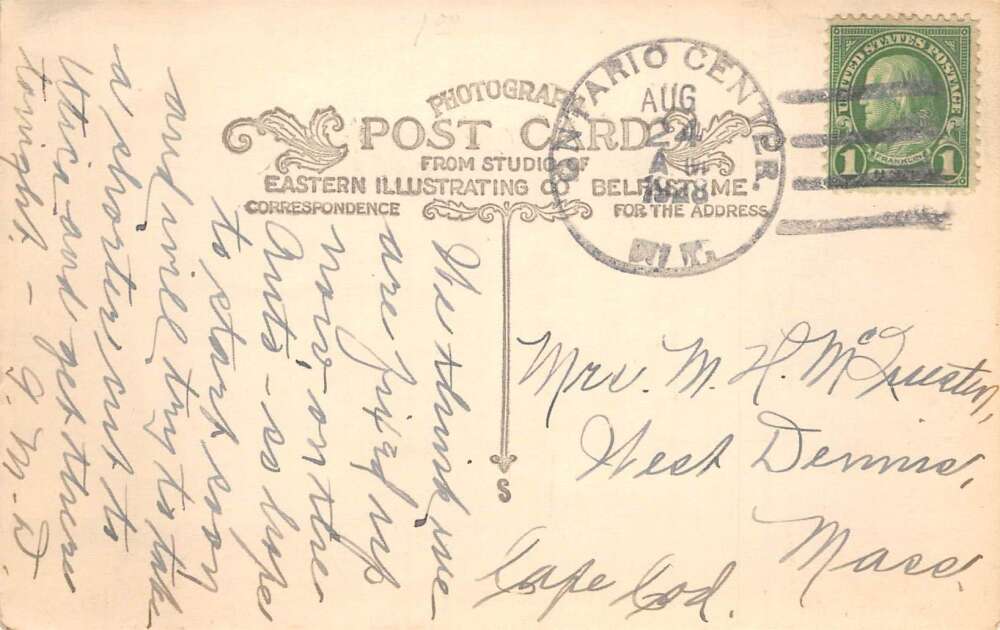 PHOTOGRAPH
POST CARD
FROM STUDIO OF
EASTERN ILLUSTRATING CO BELFAST, ME.
CORRESPONDENCE
FOR THE ADDRESS
ONTARIO CENTER
AUG
24
A M
1928
N.Y.
UNITED STATES POSTAGE
FRANKLIN
1 1
We think we
are fix'd up
now - on the
Auto - so hope
to start soon
and will try to take
a shorter cut to
Utica - and get there
tonight. -
Mrs. M. H. McQuesten,
West Dennis,
Mass.
Cape Cod.
S